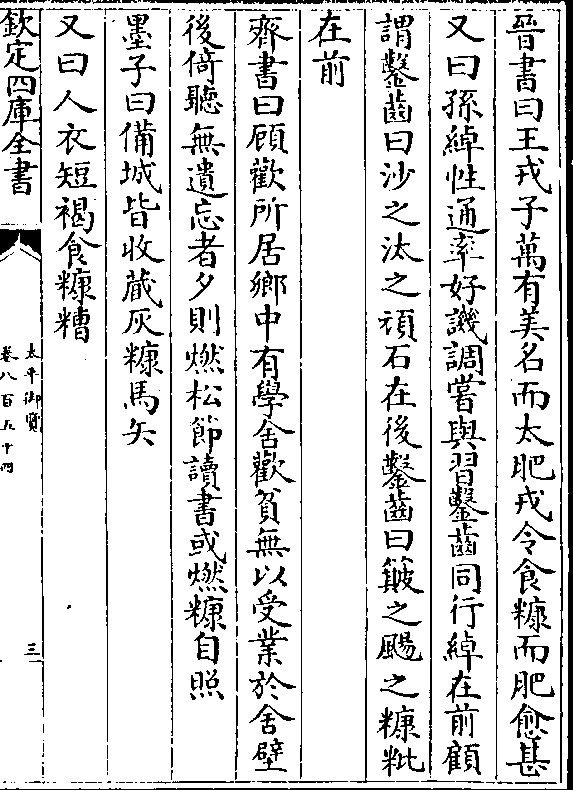 晉書曰王戎子萬有美名而太肥戎令食糠而肥愈甚
又曰孫綽性通率好譏調嘗與習鑿齒同行綽在前顧
謂鑿齒曰沙之汰之碩石在後鑿齒曰簸之颺之糠粃
在前
齊書曰顧歡所居鄉中有學舍歡貧無以受業於舍壁
後倚聽無遺忘者夕則燃松節讀書或燃糠自照
墨子曰備城皆收藏灰糠馬矢
又曰人衣短褐食糠糟
欽定四庫全書
太平御覽
卷八百五十四
三